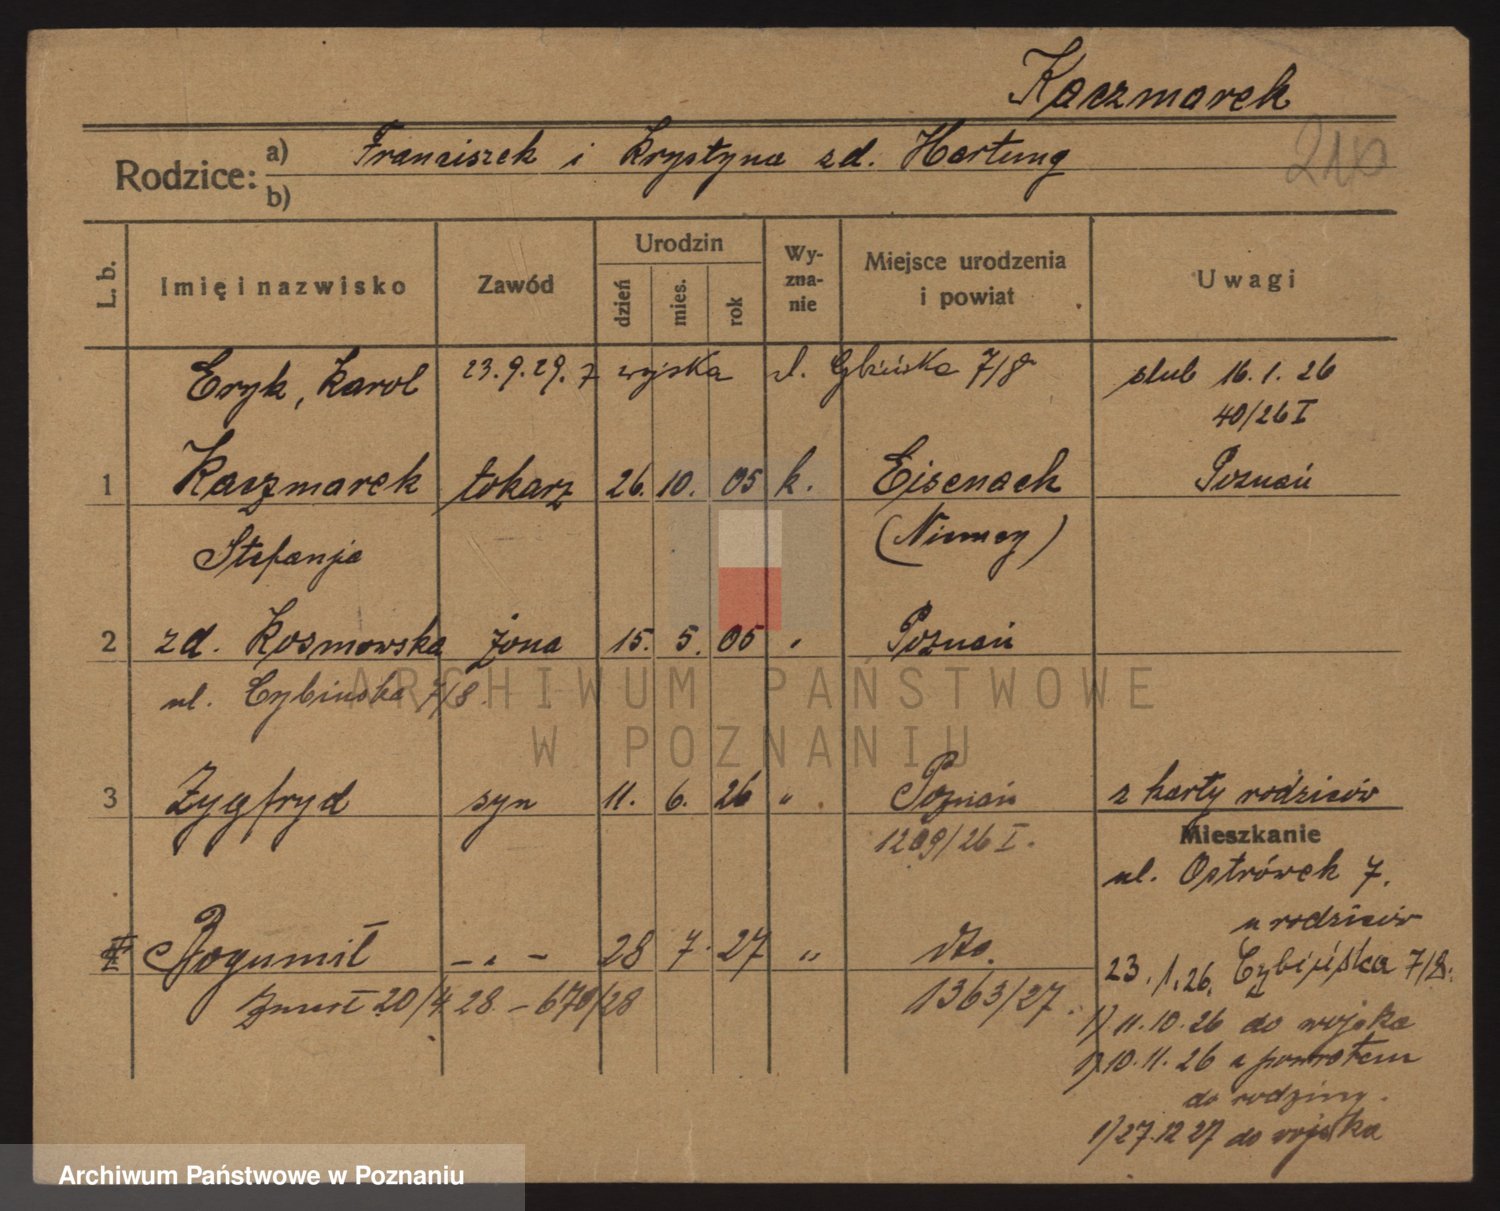 Kaczmarek
210
Rodzice: a) Franciszek i Krystyna zd. Hartung
b)
L. b. Imię i nazwisko Zawód Urodzin dzień mies. rok Wyznanie Miejsce urodzenia i powiat Uwagi
Eryk, Karol 23.9.29. z wojska ul. Cybińska 7/8 ślub 16.1.26
40/26 I
1 Kaczmarek tokarz 26. 10. 05 k. Eisenach Poznań
Stefanja (Niemcy)
2 zd. Kosmowska żona 15. 5. 05 " Poznań
ul. Cybińska 7/8.
3 Zygfryd syn 11. 6. 26 " Poznań z karty rodziców
1209/26 I.
Mieszkanie
ul. Ostrówek 7.
u rodziców
4 Bogumił - " - 28 7. 27 " dto.
23.1.26. Cybińska 7/8.
Zmarł 20/4 28. – 670/28 1363/27.
1) 11.10.26 do wojska
1) 10.11.26 z powrotem
do rodziny.
1) 27.12 27 do wojska
ARCHIWUM PAŃSTWOWE
W POZNANIU
Archiwum Państwowe w Poznaniu